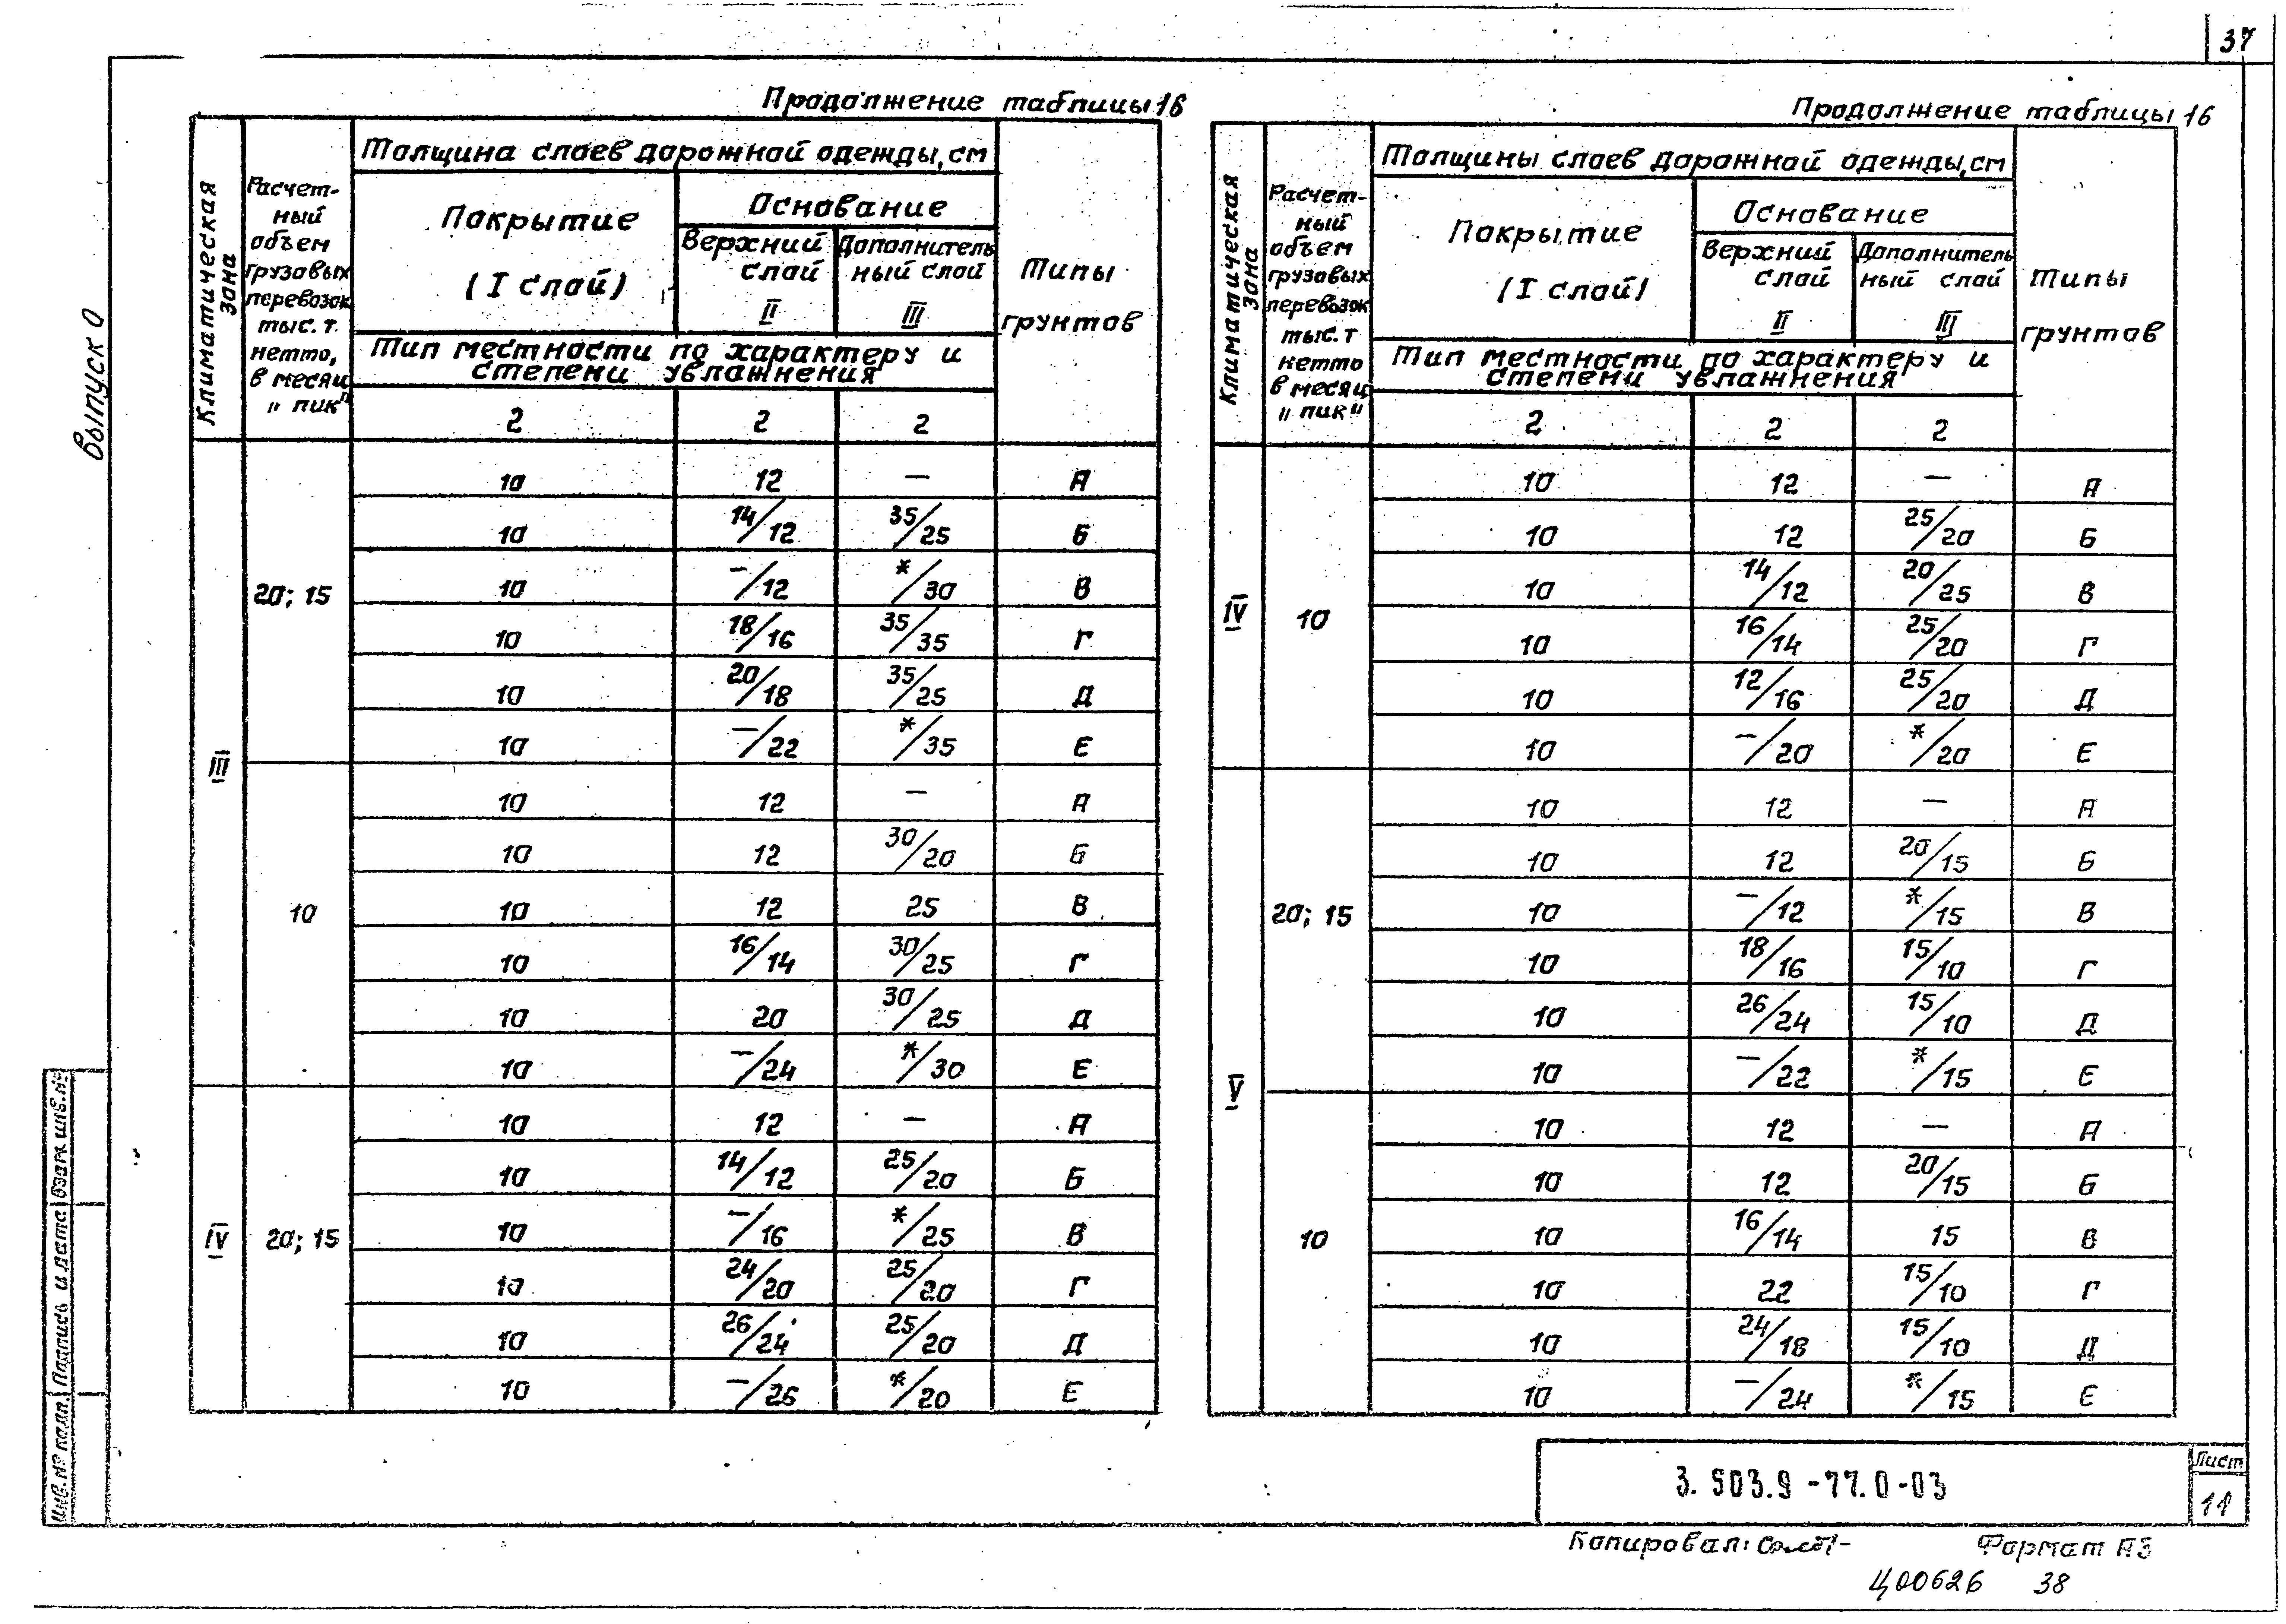 37
Выпуск 0
Продолжение таблицы 16
Климатическая зона
Расчет-
ный
объем
грузовых
перевозок
тыс. т.
нетто,
в месяц
„ пик"
Толщина слоев дорожной одежды, см
Покрытие
(I слой)
Основание
Верхний
слой
II
Дополнитель
ный слой
III
Типы
грунтов
Тип местности по характеру и
степени увлажнения
2 2 2
III
20; 15
10 12 — А
10 14/12 35/25 Б
10 —/12 */30 В
10 18/16 35/35 Г
10 20/18 35/25 Д
10 —/22 */35 Е
10
10 12 — А
10 12 30/20 Б
10 12 25 В
10 16/14 30/25 Г
10 20 30/25 Д
10 —/24 */30 Е
IV
20; 15
10 12 — А
10 14/12 25/20 Б
10 —/16 */25 В
10 24/20 25/20 Г
10 26/24 25/20 Д
10 —/26 */20 Е
Продолжение таблицы 16
Климатическая зона
Расчет-
ный
объем
грузовых
перевозок
тыс. т
нетто
в месяц
„ пик"
Толщины слоев дорожной одежды, см
Покрытие
(I слой)
Основание
Верхний
слой
II
Дополнитель
ный слой
III
Типы
грунтов
Тип местности по характеру и
степени увлажнения
2 2 2
IV
10
10 12 — А
10 12 25/20 Б
10 14/12 20/25 В
10 16/14 25/20 Г
10 12/16 25/20 Д
10 —/20 */20 Е
V
20; 15
10 12 — А
10 12 20/15 Б
10 —/12 */15 В
10 18/16 15/10 Г
10 26/24 15/10 Д
10 —/22 */15 Е
10
10 12 — А
10 12 20/15 Б
10 16/14 15 В
10 22 15/10 Г
10 24/18 15/10 Д
10 —/24 */15 Е
Инв. № подл. Подпись и дата Взам. инв. №
3.503.9-77.0-03
Лист
11
Копировал:
Формат А3
Ц00626 38